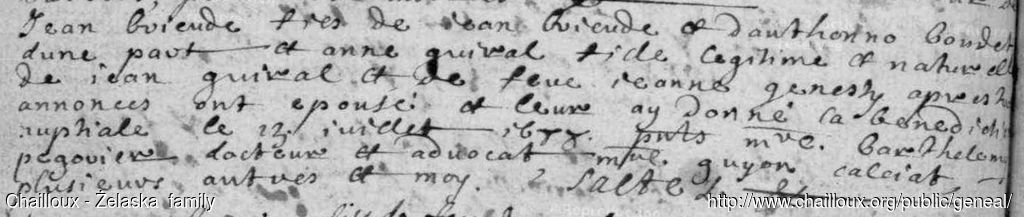 Jean brieude fies de jean brieude et danthonno boudet
dune part et anne guiral fille legitime et naturelle
de jean guiral et de feue jeanne genesty apres
annonces ont epousé et leur ay donné la benedictio
nuptiale le 12 juillet 1677. pnts mre. Barthelem
pegovier docteur et advocat mre. guyon calciat
plusieurs autres et moy.
Chailloux - Želaska family
http://www.chailloux.org/public/geneal/